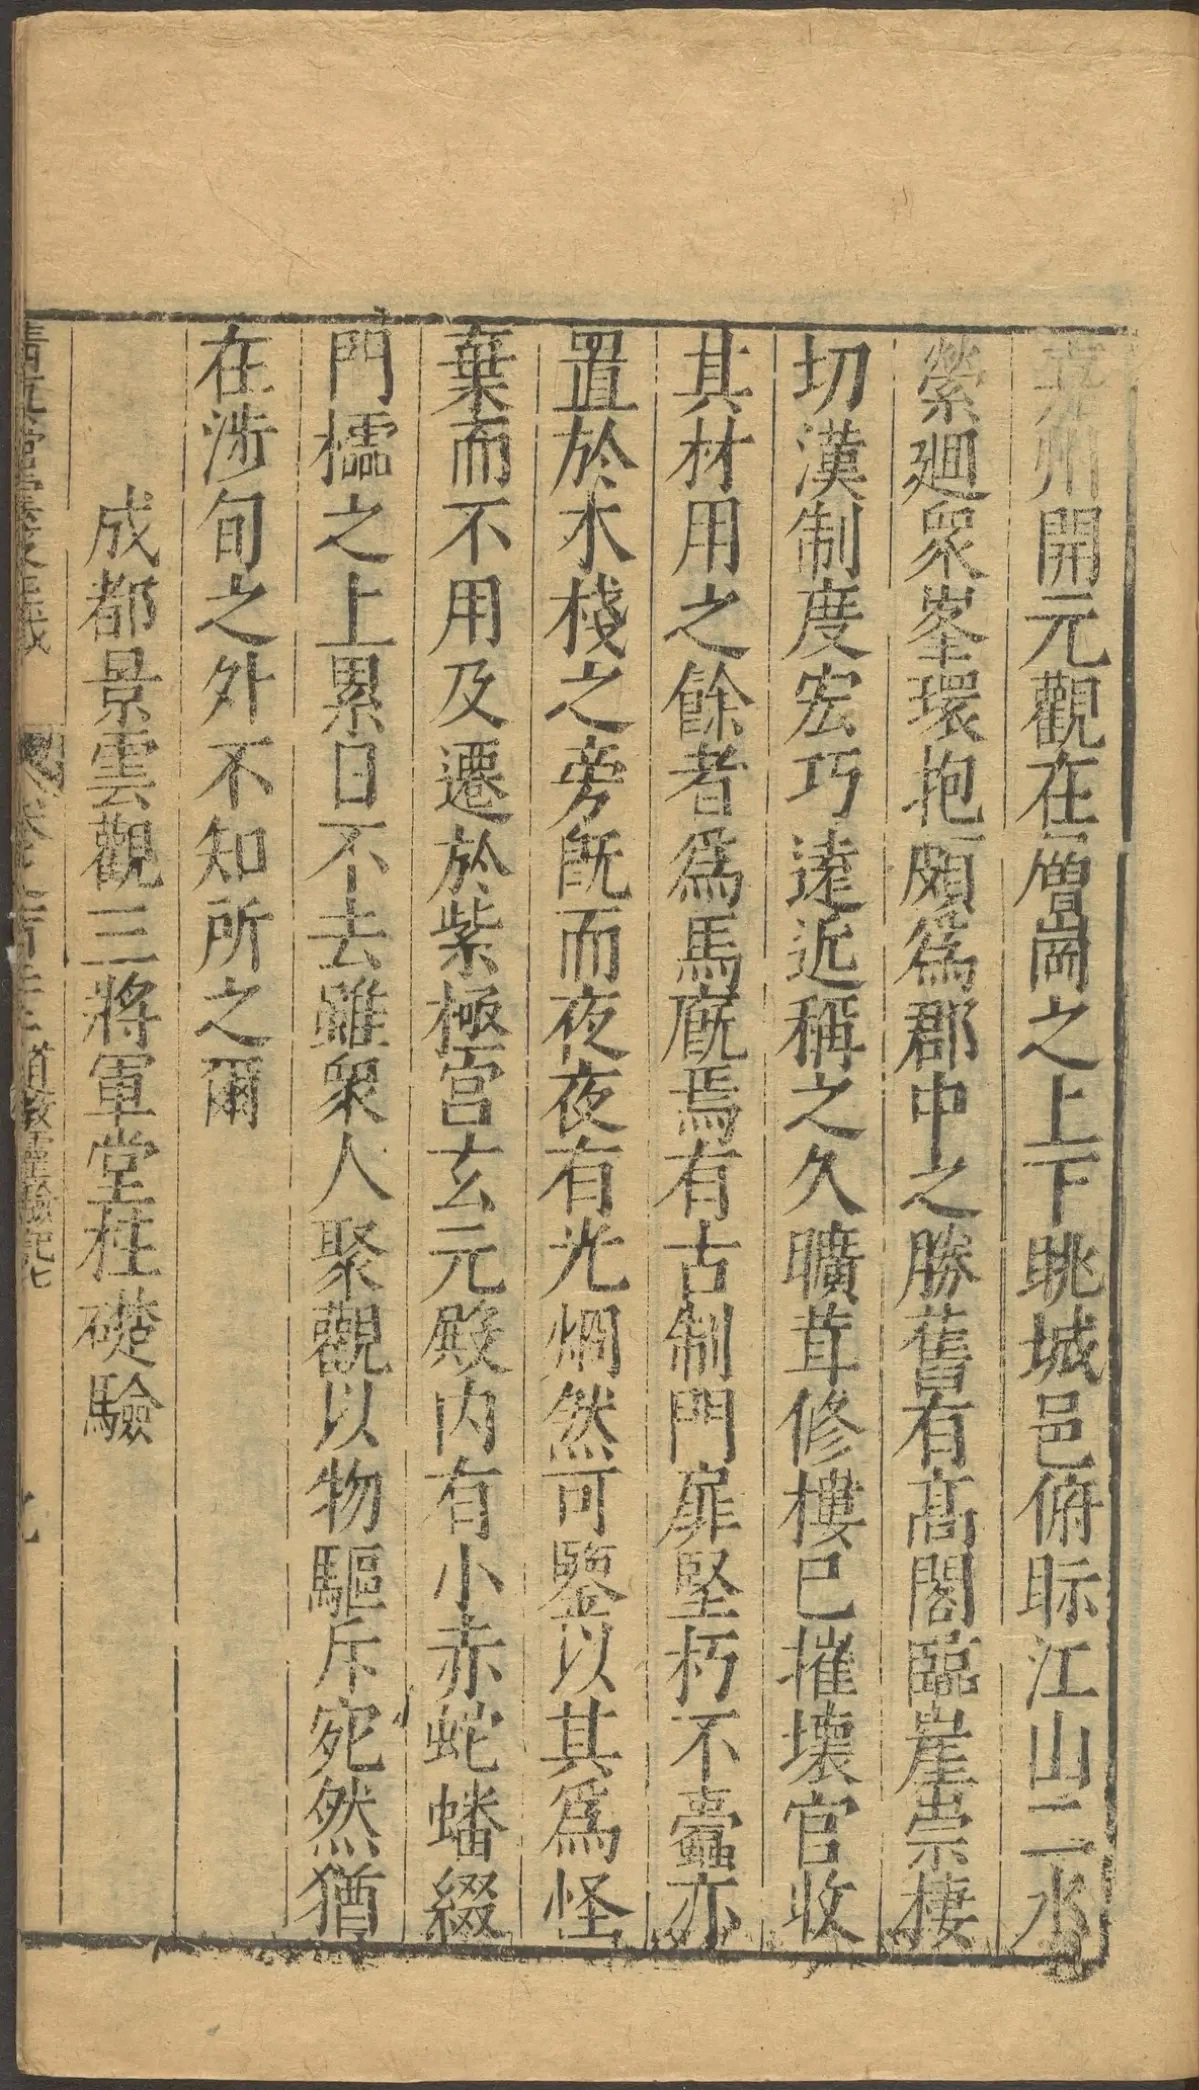 嘉州開元觀在層崗之上下眺城邑俯眎江山二水
縈廻衆峯環抱頗爲郡中之勝舊有髙閣臨崖崇棲
切漢制度宏巧遠近稱之久曠茸修樓已摧壞官收
其材用之餘者爲馬廐焉有古制門扉堅朽不蠹亦
置於木棧之旁旣而夜夜有光烱然可鑒以其爲怪
棄而不用及遷於紫極宮玄元殿内有小赤蛇蟠綴
門檽之上累日不去雖衆人聚觀以物驅斥宛然猶
在涉旬之外不知所之爾
成都景雲觀三將軍堂柱礎驗
道敎靈驗記七